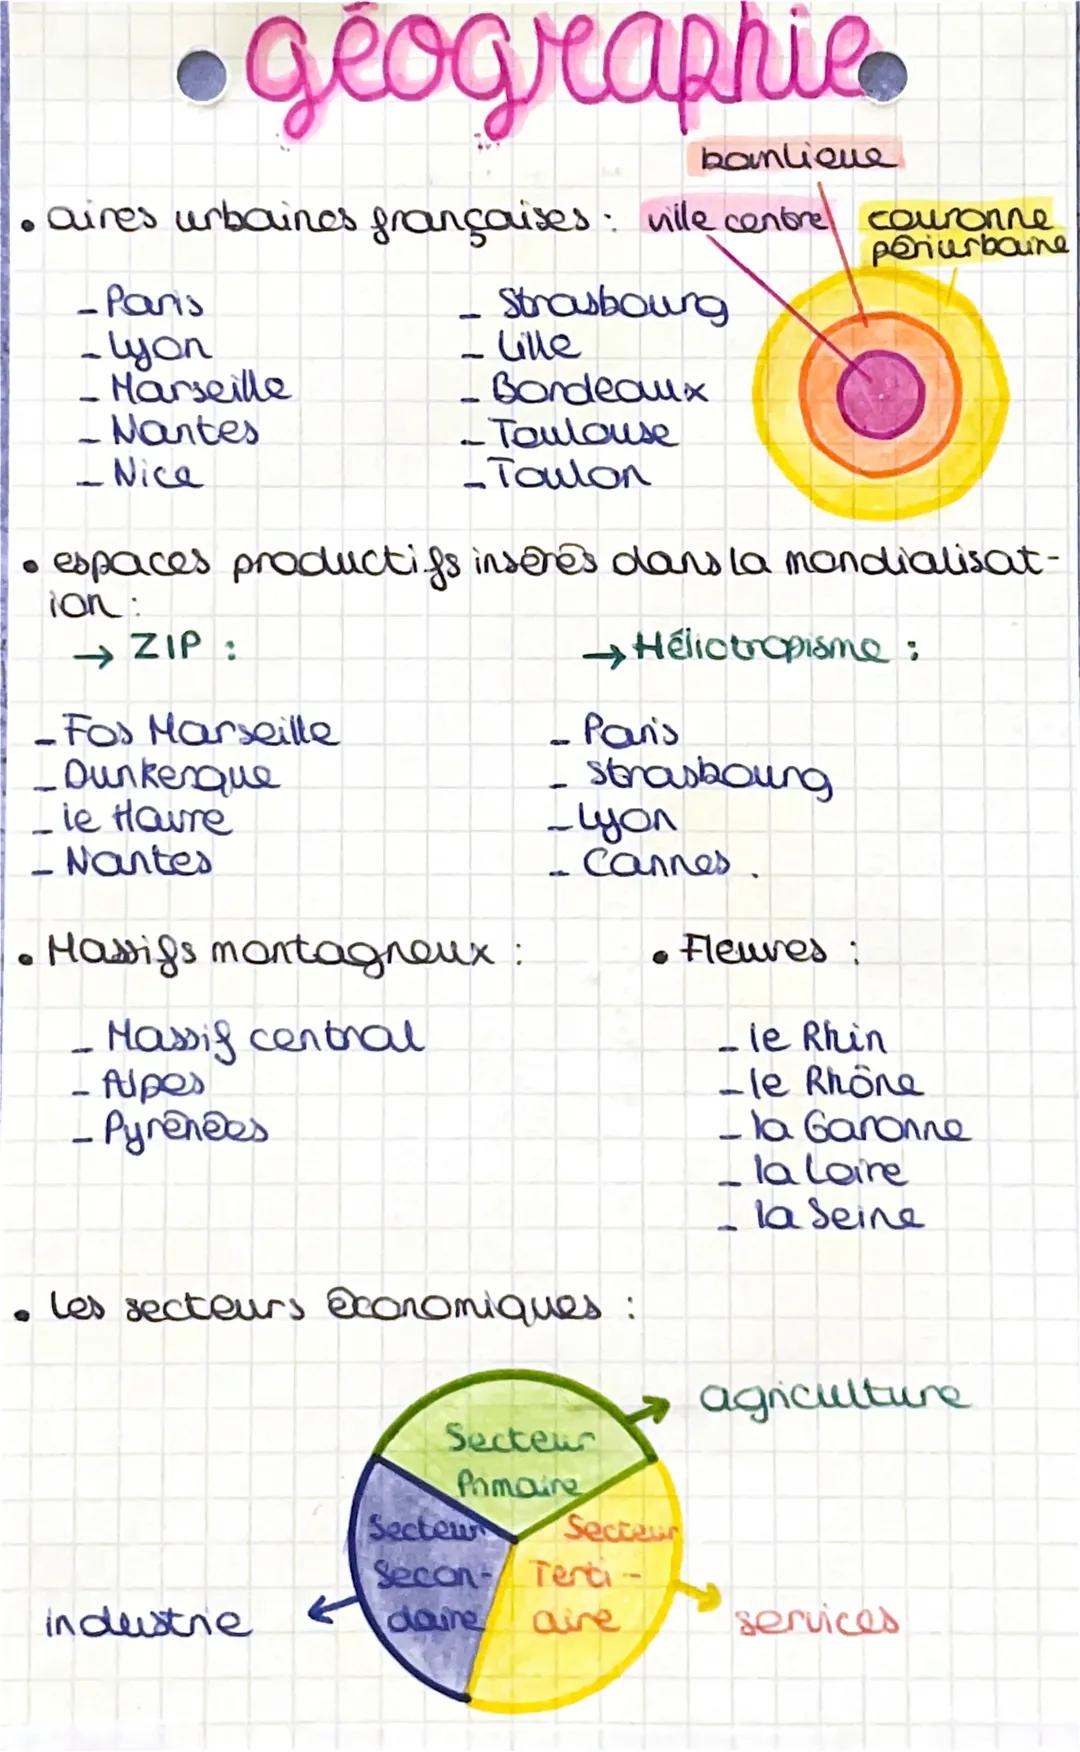 géographie
banlieue
• aires urbaines françaises : ville centre couronne
périurbaine
- Paris
- Lyon
- Marseille
- Nantes
- Nice
- Strasbourg
- Lille
- Bordeaux
- Toulouse
- Toulon
• espaces productifs insérés dans la mondialisat-
ion :
→ ZIP :
- Fos Marseille
- Dunkerque
- le Havre
- Nantes
→ Héliotropisme :
- Paris
- Strasbourg
- Lyon
- Cannes .
• Massifs montagneux :
- Massif central
- Alpes
- Pyrénées
• Fleuves :
- le Rhin
- le Rhône
- la Garonne
- la Loire
- la Seine
• les secteurs économiques :
agriculture
Secteur
Primaire
Secteur
Secon-
daire
Secteur
Terti-
aire
industrie
services